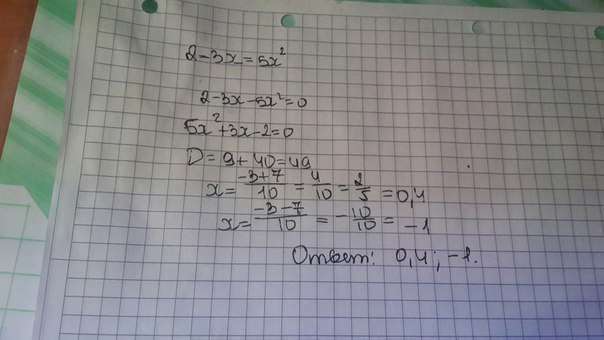 2-3x=5x²
2-3x-5x²=0
5x²+3x-2=0
D=9+40=49
x=\frac{-3+7}{10}=\frac{4}{10}=\frac{2}{5}=0,4
x=\frac{-3-7}{10}=-\frac{10}{10}=-1
Ответ: 0,4; -1.